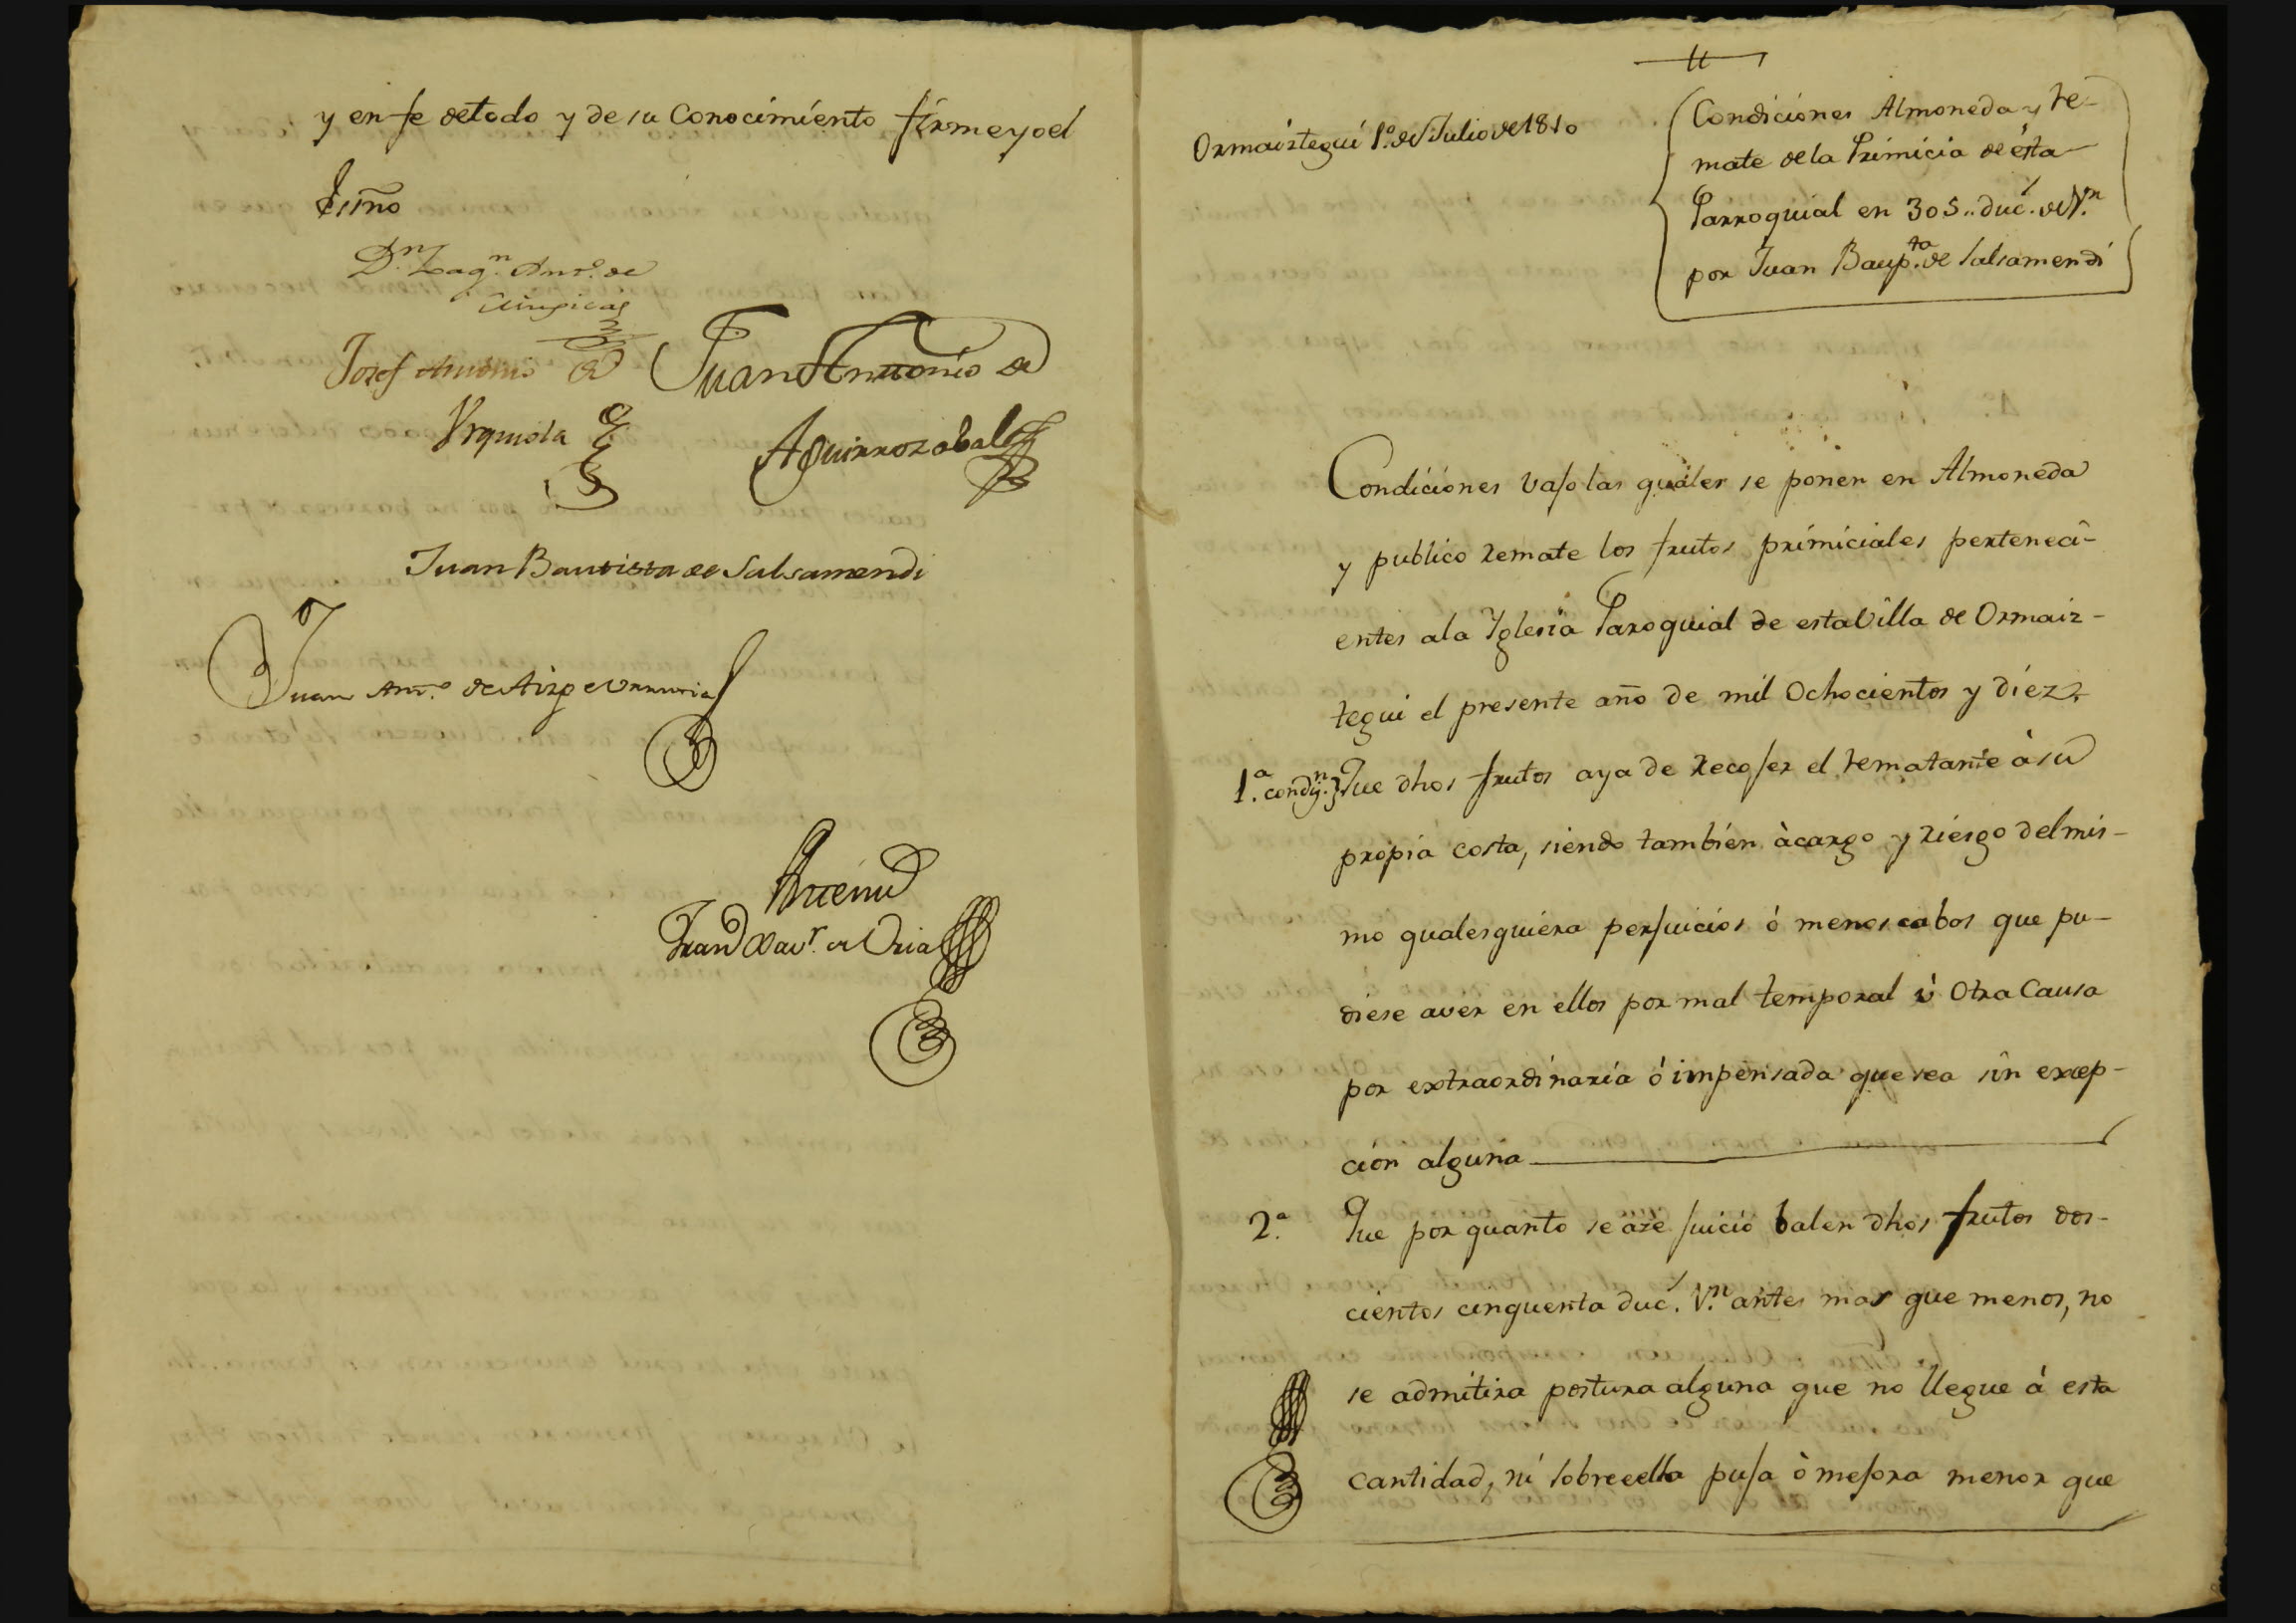 y en fe de todo y de su Conocimiento firme yo el
Essño
D.n Zag.n Ant.o de
Josef Antonio de
Urquiola
Juan Antonio de
Aguirrozabal
Juan Bautista de Salsamendi
Juan Ant.o de Aizpeurrutia
Ante mi
Fran.co Xav.r de Oria
11
Ormaiztegui 1.o de Julio de 1810
Condiciones Almoneda y re-
mate de la Primicia de ésta
Parroquial en 305.. duc.s de V.n
por Juan Baup.ta de Salsamendi
Condiciones vajo las quales se ponen en Almoneda
y publico remate los frutos primiciales perteneci-
entes a la Yglesia Paroquial de esta Villa de Ormaiz-
tegui el presente año de mil Ochocientos y diez.
1.a condi.n Que dhos frutos aya de recojer el rematante à su
propia costa, siendo tambien à cargo y riesgo del mis-
mo qualesquiera perjuicios ó menoscabos que pu-
diese aver en ellos por mal temporal ù Otra Causa
por extraordinaria ó impensada que sea sin excep-
cion alguna
2.a Que por quanto se aze juicio balen dhos frutos dos-
cientos cinquenta duc.s V.n antes mas que menos, no
se admitira postura alguna que no llegue á esta
cantidad, ni sobre ella puja ò mejora menor que